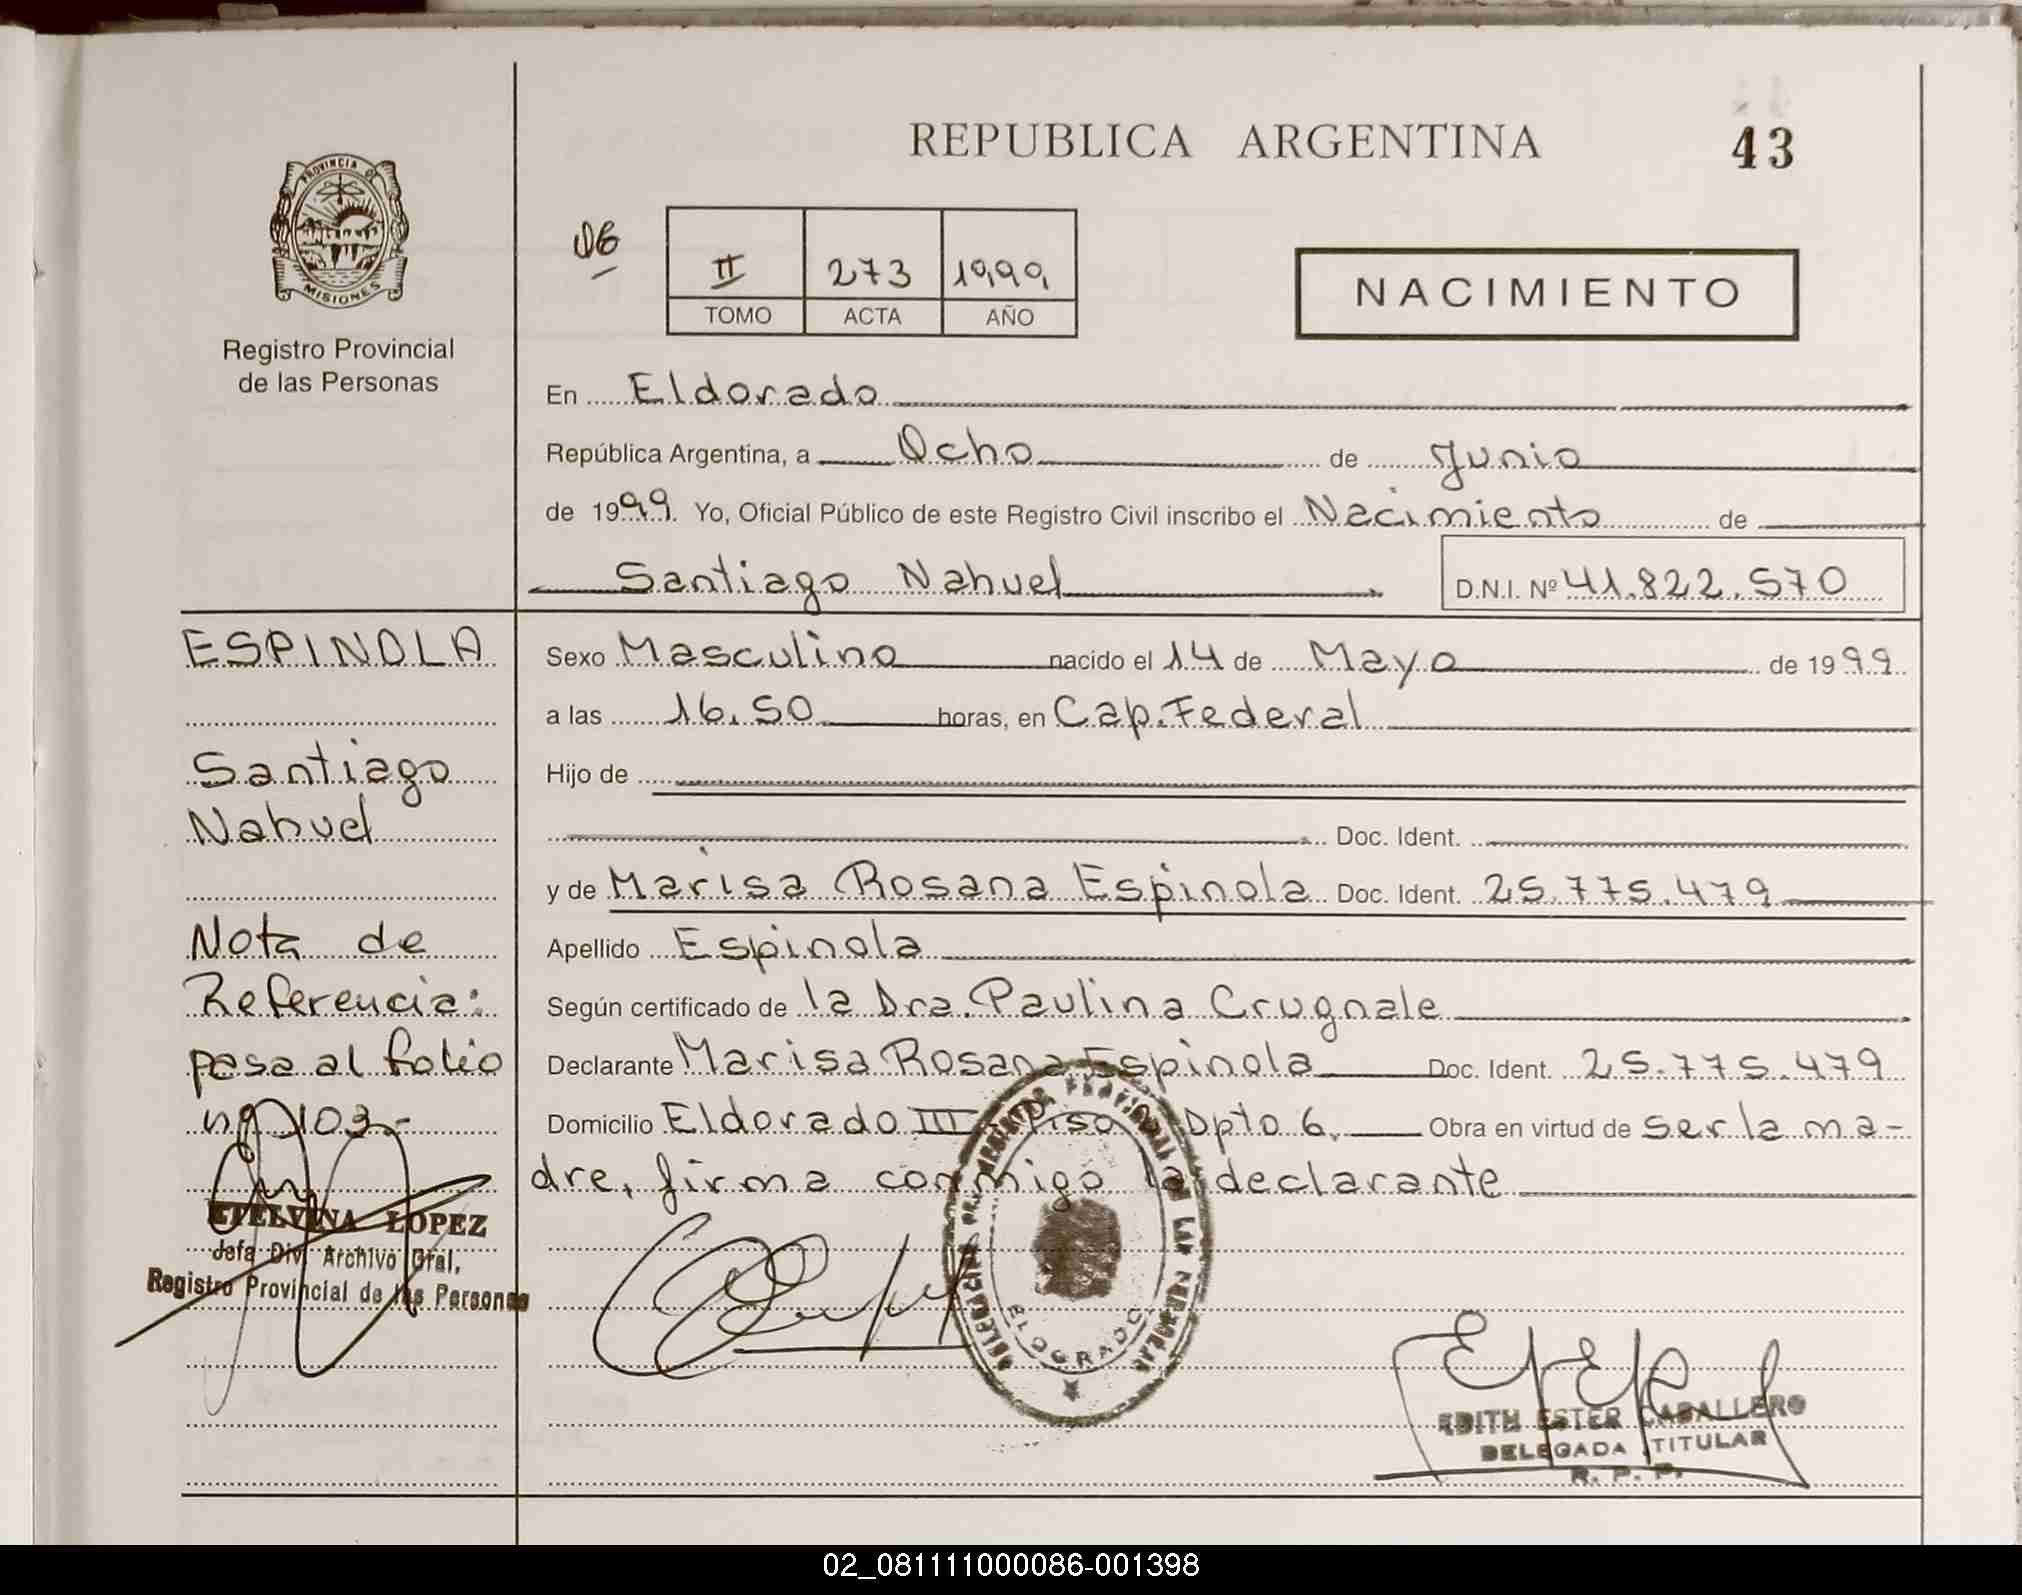 REPUBLICA ARGENTINA
43
PROVINCIA DE
MISIONES
Registro Provincial
de las Personas
06
II 273 1999
TOMO ACTA AÑO
NACIMIENTO
En Eldorado
República Argentina, a Ocho de Junio
de 1999. Yo, Oficial Público de este Registro Civil inscribo el Nacimiento de
Santiago Nahuel D.N.I. Nº 41.822.570
ESPINOLA
Santiago
Nahuel
Nota de
Referencia:
pasa al folio
nº 103-
ETELVINA LOPEZ
Jefa Div. Archivo Gral,
Registro Provincial de las Personas
Sexo Masculino nacido el 14 de Mayo de 1999
a las 16.50 horas, en Cap. Federal
Hijo de
Doc. Ident.
y de Marisa Rosana Espinola Doc. Ident. 25.775.479
Apellido Espinola
Según certificado de la Dra. Paulina Crugnale
Declarante Marisa Rosana Espinola Doc. Ident. 25.775.479
Domicilio Eldorado III Piso Dpto 6. Obra en virtud de ser la ma-
dre, firma conmigo la declarante
ELDORADO
EDITH ESTER CABALLERO
DELEGADA TITULAR
R. P. P.
02_081111000086-001398